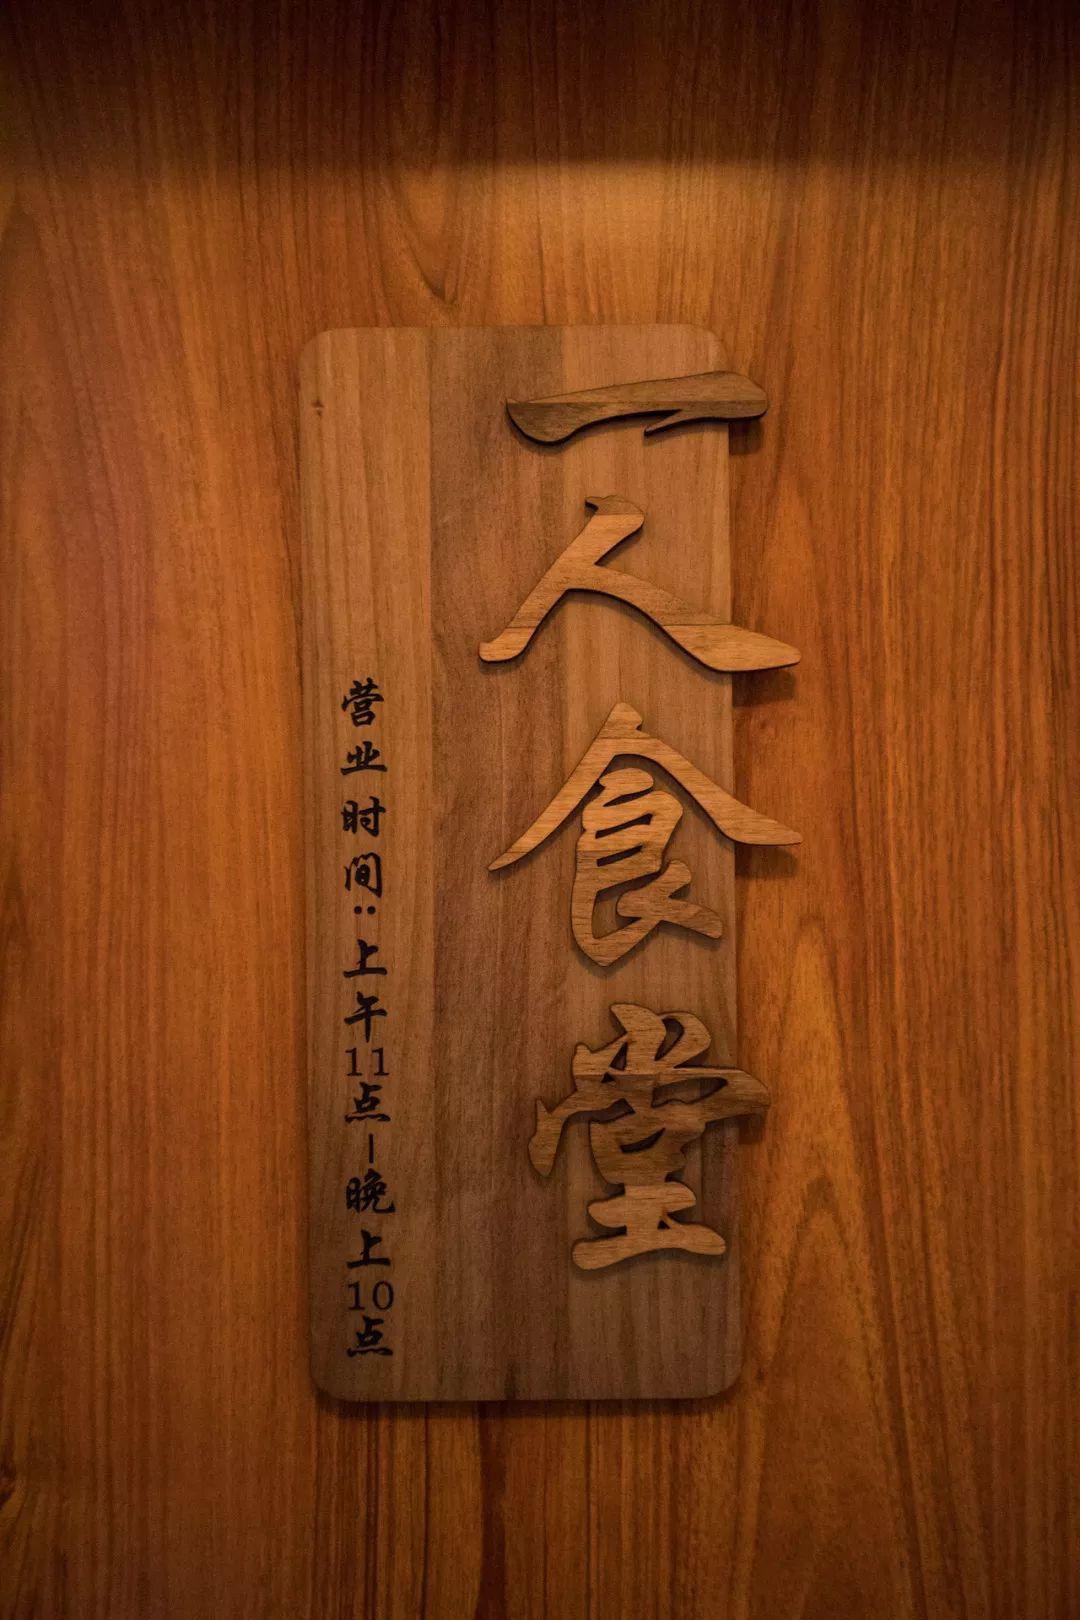 一人食堂
营业时间：上午11点-晚上10点